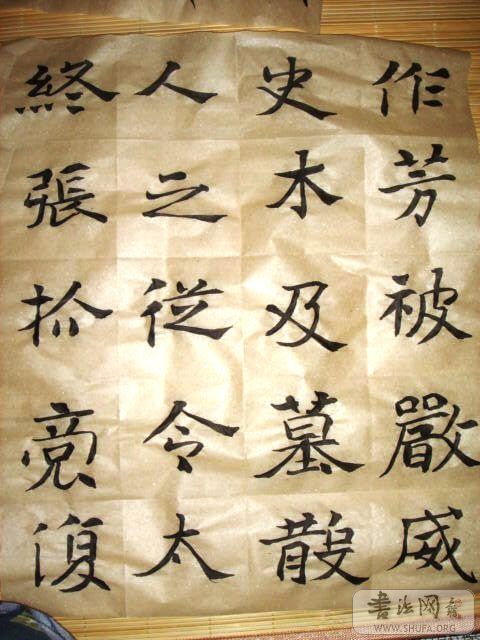 作芳被嚴威
史木及墓散
人之從令太
終張扵竟復
書法网
WWW.SHUFA.ORG